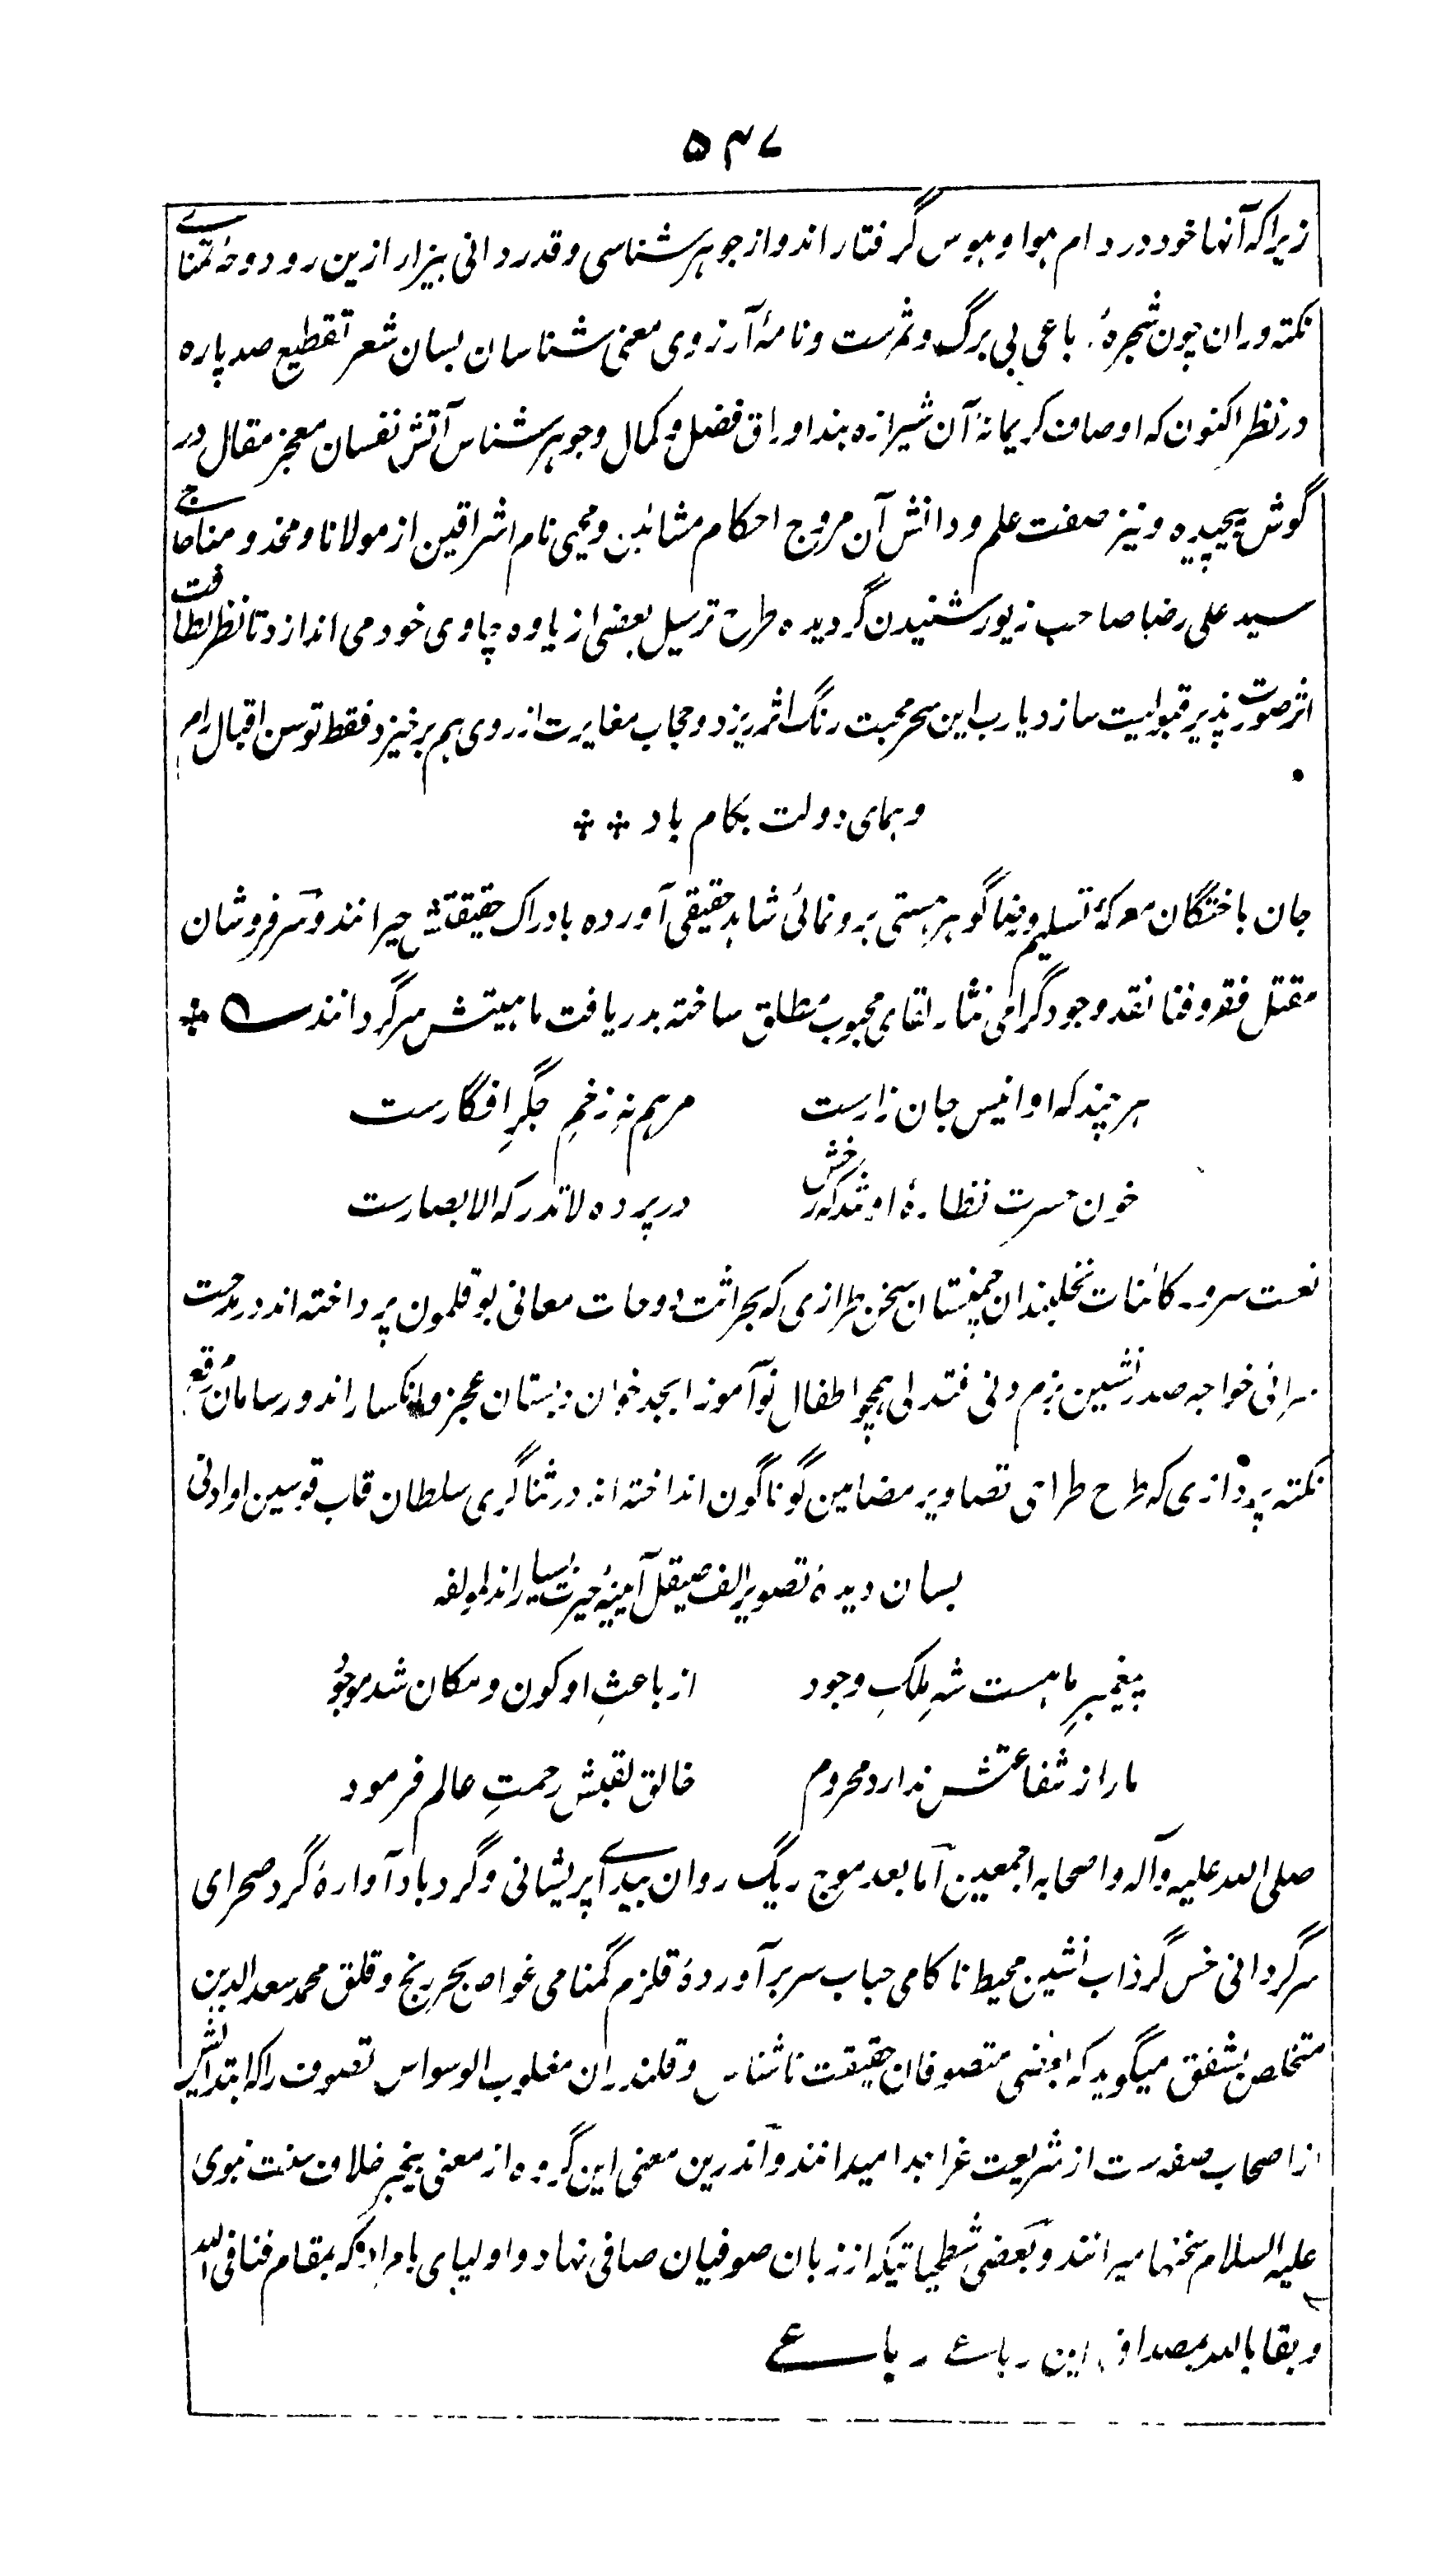 ۵۴۷
زیرا که آنها خود در دام هوا و هوس گرفتار اند و از جوهر شناسی و قدر دانی بیزار ازین رو دوحهٔ تمنای
نکته وران چون شجرهٔ باغی بی برگ و ثمرست و نامهٔ آرزوی معنی شناسان بسان شعر تقطیع صد پاره
در نظر اکنون که اوصاف کریمانهٔ آن شیرازه بند اوراق فضل و کمال و جوهر شناس آتش نفسان معجز مقال در
گوش پیچیده و نیز صفت علم و دانش آن مروج احکام مشائین و محیی نام اشراقین از مولانا و مخدومنا حاج
سید علی رضا صاحب زیور شنیدن گردیده طرح ترسیل بعضی از یاوه چاوی خود می اندازد تا نظر بطافت
اثر صورت پذیر قبولیت سازد یا رب این سحر محبت رنگ اثر ریزد و حجاب مغایرت از روی هم برخیزد فقط توسن اقبال رام
و همای دولت بکام باد ⁂ ⁂
جان باختگان معرکهٔ تسلیم و رضا گوهر هستی برونمائی شاهد حقیقی آورده بادراک حقیقتش حیرانند و سرفروشان
مقتل فقر و فنا نقد وجود گرامی نثار لقای محبوب مطلق ساخته بدریافت ماهیتش سرگردانند ⁂
هر چند که او انیس جان زارست مرهم نهِ زخمِ جگرِ افگارست
خون حسرت نظارهٔ او شد که رخش در پرده لا تدرکه الابصارست
نعت سرور کائنات نخلبندان چمنستان سخن طرازی که بحراثت دوحات معانی بوقلمون پرداخته اند در مدحت
سرائی خواجه صدر نشین بزم دنی فتدلی همچو اطفال نوآموز ابجد خوان دبستان عجز و انکسار اند و رسامان مرقع
نکته پردازی که طرح طراحی تصاویر مضامین گوناگون انداخته اند در ثناگری سلطان قاب قوسین او ادنی
بسان دیدهٔ تصویر الف صیقل آئینهٔ حیرت سیار اند لمولفه
پیغمبرِ ما هست شهِ ملکِ وجود از باعثِ او کون و مکان شد موجود
ما را ز شفاعتش ندارد محروم خالق لقبش رحمتِ عالم فرمود
صلی الله علیه و آله و اصحابه اجمعین اما بعد موج ریگ روان بیدای پریشانی و گردباد آوارهٔ گرد صحرای
سرگردانی خس گرداب نشین محیط ناکامی حباب سر برآوردهٔ قلزم گمنامی غواص بحر رنج و قلق محمد سعد الدین
متخلص بشفق میگوید که بعضی متصوفان حقیقت ناشناس و قلندران مغلوب الوسواس تصوف را که ابتدایش
از اصحاب صفه ست از شریعت غرا جدا میدانند و اندرین معنی این گروه از معنی بیخبر خلاف سنت نبوی
علیه السلام سخنها میرانند و بعضی شطحیاتیکه از زبان صوفیان صافی نهاد و اولیای بامراد که بمقام فنا فی الله
و بقا بالله بمصداق این رباعی رباعی